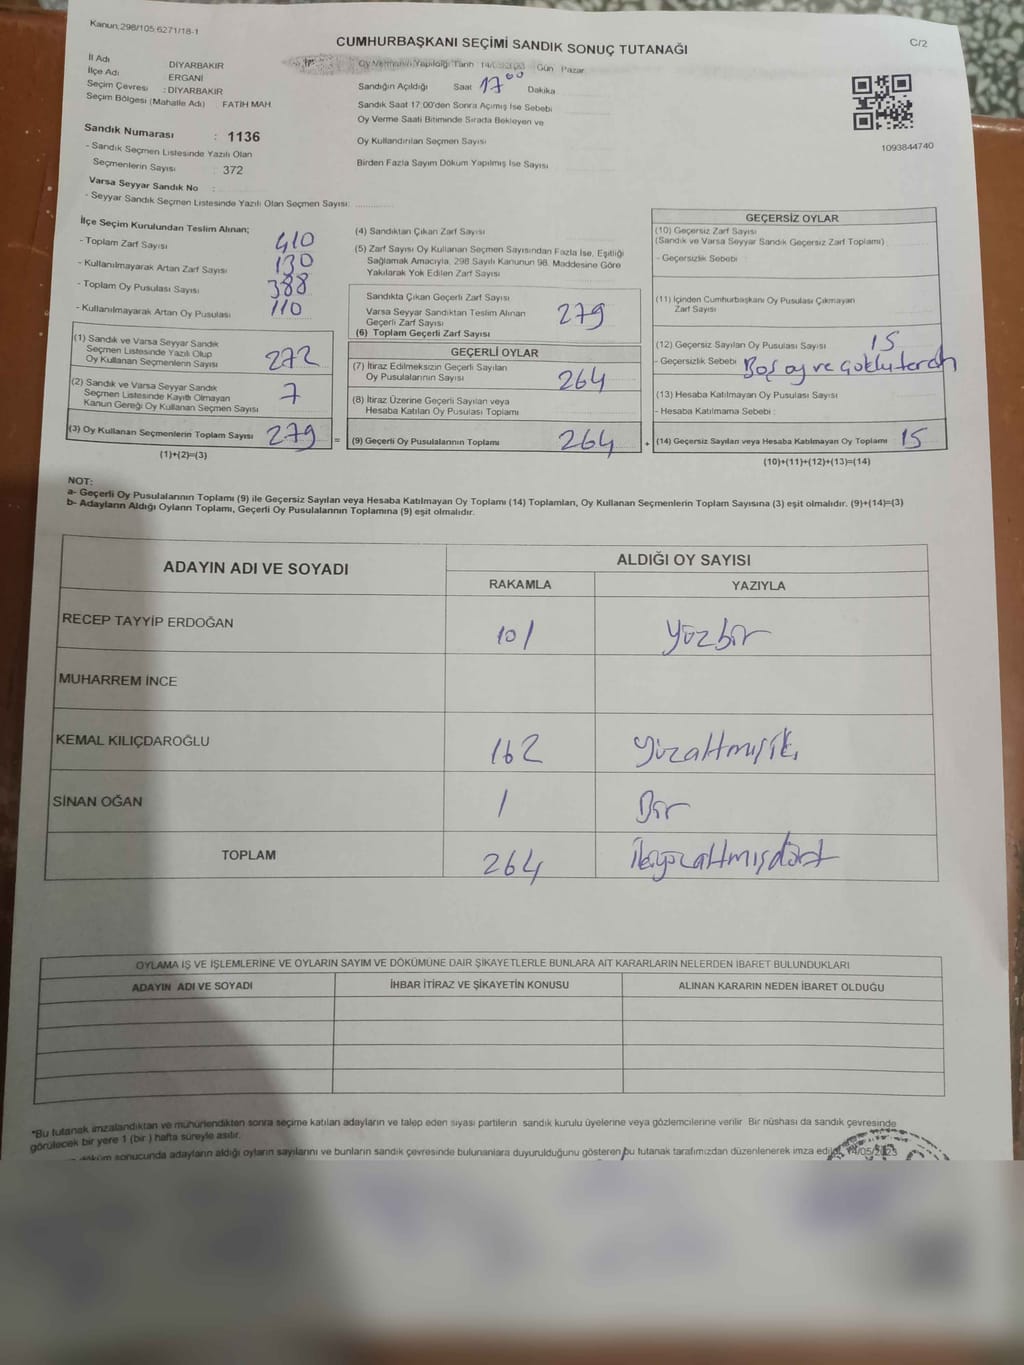 Kanun;298/105;6271/18-1
C/2
CUMHURBAŞKANI SEÇİMİ SANDIK SONUÇ TUTANAĞI
İl Adı DİYARBAKIR
İlçe Adı : ERGANİ
Seçim Çevresi : DİYARBAKIR
Seçim Bölgesi (Mahalle Adı) : FATİH MAH.
Sandık Numarası : 1136
- Sandık Seçmen Listesinde Yazılı Olan
Seçmenlerin Sayısı : 372
Varsa Seyyar Sandık No :
- Seyyar Sandık Seçmen Listesinde Yazılı Olan Seçmen Sayısı:
Oy Vermenin Yapıldığı Tarih Gün Pazar
Sandığın Açıldığı Saat 17 00 Dakika
Sandık Saat 17:00'den Sonra Açımış İse Sebebi
Oy Verme Saati Bitiminde Sırada Bekleyen ve
Oy Kullandırılan Seçmen Sayısı
Birden Fazla Sayım Döküm Yapılmış İse Sayısı
1093844740
İlçe Seçim Kurulundan Teslim Alınan;
- Toplam Zarf Sayısı 410
- Kullanılmayarak Artan Zarf Sayısı 130
- Toplam Oy Pusulası Sayısı 388
- Kullanılmayarak Artan Oy Pusulası 110
(1) Sandık ve Varsa Seyyar Sandık
Seçmen Listesinde Yazılı Olup
Oy Kullanan Seçmenlerin Sayısı 272
(2) Sandık ve Varsa Seyyar Sandık
Seçmen Listesinde Kayıtlı Olmayan
Kanun Gereği Oy Kullanan Seçmen Sayısı 7
(3) Oy Kullanan Seçmenlerin Toplam Sayısı 279 =
(1)+(2)=(3)
(4) Sandıktan Çıkan Zarf Sayısı
(5) Zarf Sayısı Oy Kullanan Seçmen Sayısından Fazla İse, Eşitliği
Sağlamak Amacıyla, 298 Sayılı Kanunun 98. Maddesine Göre
Yakılarak Yok Edilen Zarf Sayısı
Sandıkta Çıkan Geçerli Zarf Sayısı
Varsa Seyyar Sandıktan Teslim Alınan
Geçerli Zarf Sayısı
(6) Toplam Geçerli Zarf Sayısı 279
GEÇERLİ OYLAR
(7) İtiraz Edilmeksizin Geçerli Sayılan
Oy Pusulalarının Sayısı 264
(8) İtiraz Üzerine Geçerli Sayılan veya
Hesaba Katılan Oy Pusulası Toplamı
(9) Geçerli Oy Pusulalarının Toplamı 264 +
GEÇERSİZ OYLAR
(10) Geçersiz Zarf Sayısı
(Sandık ve Varsa Seyyar Sandık Geçersiz Zarf Toplamı)
- Geçersizlik Sebebi :
(11) İçinden Cumhurbaşkanı Oy Pusulası Çıkmayan
Zarf Sayısı
(12) Geçersiz Sayılan Oy Pusulası Sayısı 15
- Geçersizlik Sebebi : Boş oy ve çoklu tercih
(13) Hesaba Katılmayan Oy Pusulası Sayısı
- Hesaba Katılmama Sebebi :
(14) Geçersiz Sayılan veya Hesaba Katılmayan Oy Toplamı 15
(10)+(11)+(12)+(13)=(14)
NOT:
a- Geçerli Oy Pusulalarının Toplamı (9) ile Geçersiz Sayılan veya Hesaba Katılmayan Oy Toplamı (14) Toplamları, Oy Kullanan Seçmenlerin Toplam Sayısına (3) eşit olmalıdır. (9)+(14)=(3)
b- Adayların Aldığı Oyların Toplamı, Geçerli Oy Pusulalarının Toplamına (9) eşit olmalıdır.
ADAYIN ADI VE SOYADI
ALDIĞI OY SAYISI
RAKAMLA YAZIYLA
RECEP TAYYİP ERDOĞAN 101 yüzbir
MUHARREM İNCE
KEMAL KILIÇDAROĞLU 162 yüzaltmışiki
SİNAN OĞAN 1 Bir
TOPLAM 264 ikiyüzaltmışdört
OYLAMA İŞ VE İŞLEMLERİNE VE OYLARIN SAYIM VE DÖKÜMÜNE DAİR ŞİKAYETLERLE BUNLARA AİT KARARLARIN NELERDEN İBARET BULUNDUKLARI
ADAYIN ADI VE SOYADI İHBAR İTİRAZ VE ŞİKAYETİN KONUSU ALINAN KARARIN NEDEN İBARET OLDUĞU
*Bu tutanak imzalandıktan ve mühürlendikten sonra seçime katılan adayların ve talep eden siyasi partilerin sandık kurulu üyelerine veya gözlemcilerine verilir. Bir nüshası da sandık çevresinde
görülecek bir yere 1 (bir ) hafta süreyle asılır.
döküm sonucunda adayların aldığı oyların sayılarını ve bunların sandık çevresinde bulunanlara duyurulduğunu gösteren bu tutanak tarafımızdan düzenlenerek imza edildi. 14/05/2023